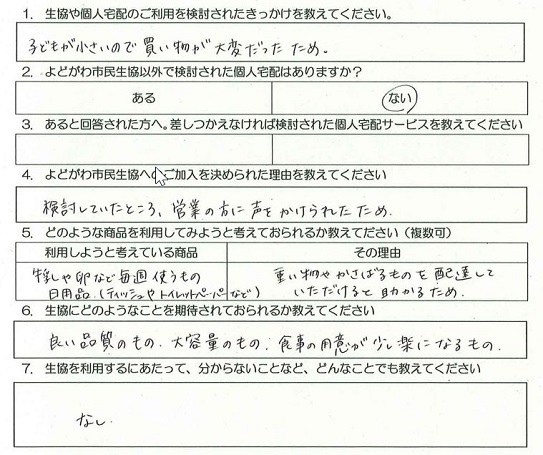 1. 生協や個人宅配のご利用を検討されたきっかけを教えてください。
子どもが小さいので買い物が大変だったため。
2. よどがわ市民生協以外で検討された個人宅配はありますか？
ある ない
3. あると回答された方へ。差しつかえなければ検討された個人宅配サービスを教えてください
4. よどがわ市民生協へのご加入を決められた理由を教えてください
検討していたところ、営業の方に声をかけられたため.
5. どのような商品を利用してみようと考えておられるか教えてださい（複数可）
利用しようと考えている商品 その理由
牛乳や卵など毎週使うもの 重い物やかさばるものを配達して
日用品（ティッシュやトイレットペーパーなど） いただけると助かるため.
6. 生協にどのようなことを期待されておられるか教えてください
良い品質のもの. 大容量のもの. 食事の用意が少し楽になるもの.
7. 生協を利用するにあたって、分からないことなど、どんなことでも教えてください
なし.